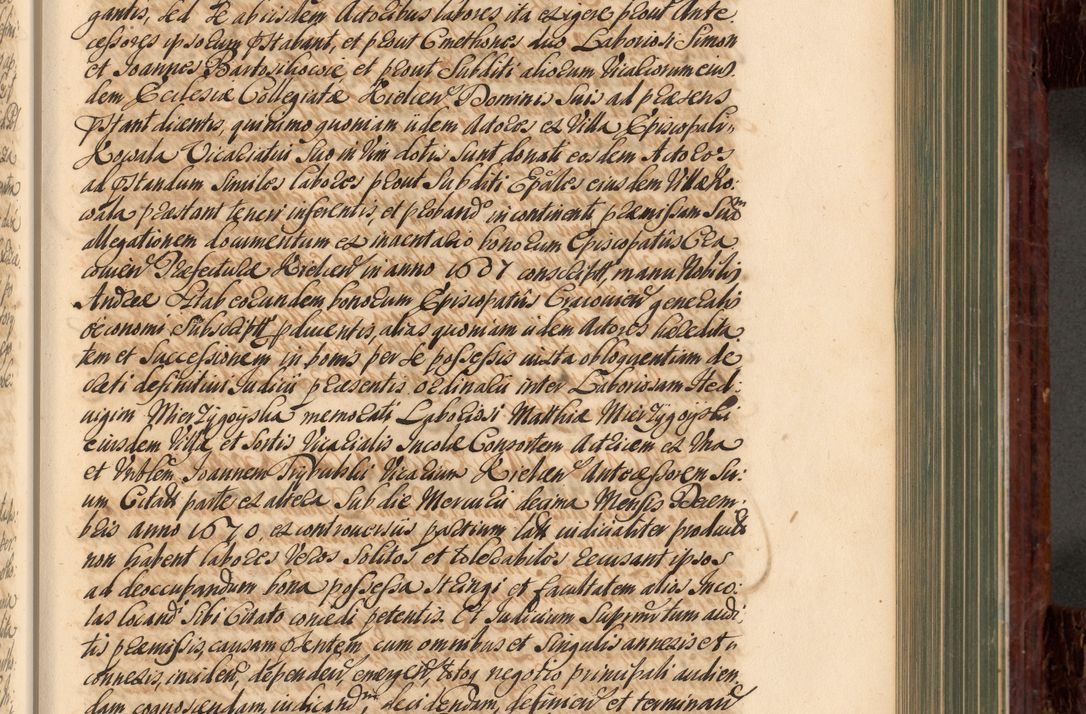 gantis, sed se ab iisdem Actoribus labores ita exigere prout Ante
cessores ipsorum pstabant, et prout Cmethones duo Laboriosi Simon
et Joannes Bartosikowie et prout Subditi aliorum Vicaliorum eius
dem Ecclesiæ Collegiatæ Kielcen Dominis suis ad præsens
pstant dicentis, quinimo quoniam iidem Actores ex Villa Episcopali
Kowala Vicariatui Suo in Vim dotis sunt donati eosdem Actores
ad pstandum similes labores prout Subditi Epāles eiusdem Villæ Ko:
wala præstant teneri inferentis, et proband in continenti præmissam suam
allegationem documentum ex inventario bonorum Episcopatus Cra
covien Præfecturæ Kielcen in anno 1637 conscript, manu Nobilis
Andreæ eorundem bonorum Episcopatus Cracovien generalis
œconomi Subscript pducentis, alias quoniam iidem Actores hæredita
tem et successionem in bonis per se possessis iuxta obloquentiam de
creti definitivi Judicii præsentis ordinarii inter Laboriosam Hed:
vigim Mierzygoyska memorati Laboriosi Matthiæ Mierzygoyski
eiusdem Villæ et Sortis Vicarialis Incolæ Consortem Actricem ex Una
et Vnblem Joannem Vicarium Kielcen Antecessorem Su:
um Citatū parte ex altera sub die Mercurii decima Mensis Decem:
bris anno 1670 ex controversiis partium latū iudicialiter productū
non habent labores veros solitos et tolerabiles recusant ipsos
ad deoccupandum bona possessa stringi et facultatem alios Inco:
las locandi sibi Citato concedi petentis. Et Judicium Suprmūtum audi
tis præmissis, causam pñtem, cum omnibus et singulis annexis et
connexis, inciden, dependen, emergen, totoq negotio principali audien
dam cognoscendam, iudicandm, decidendam, definien et terminan